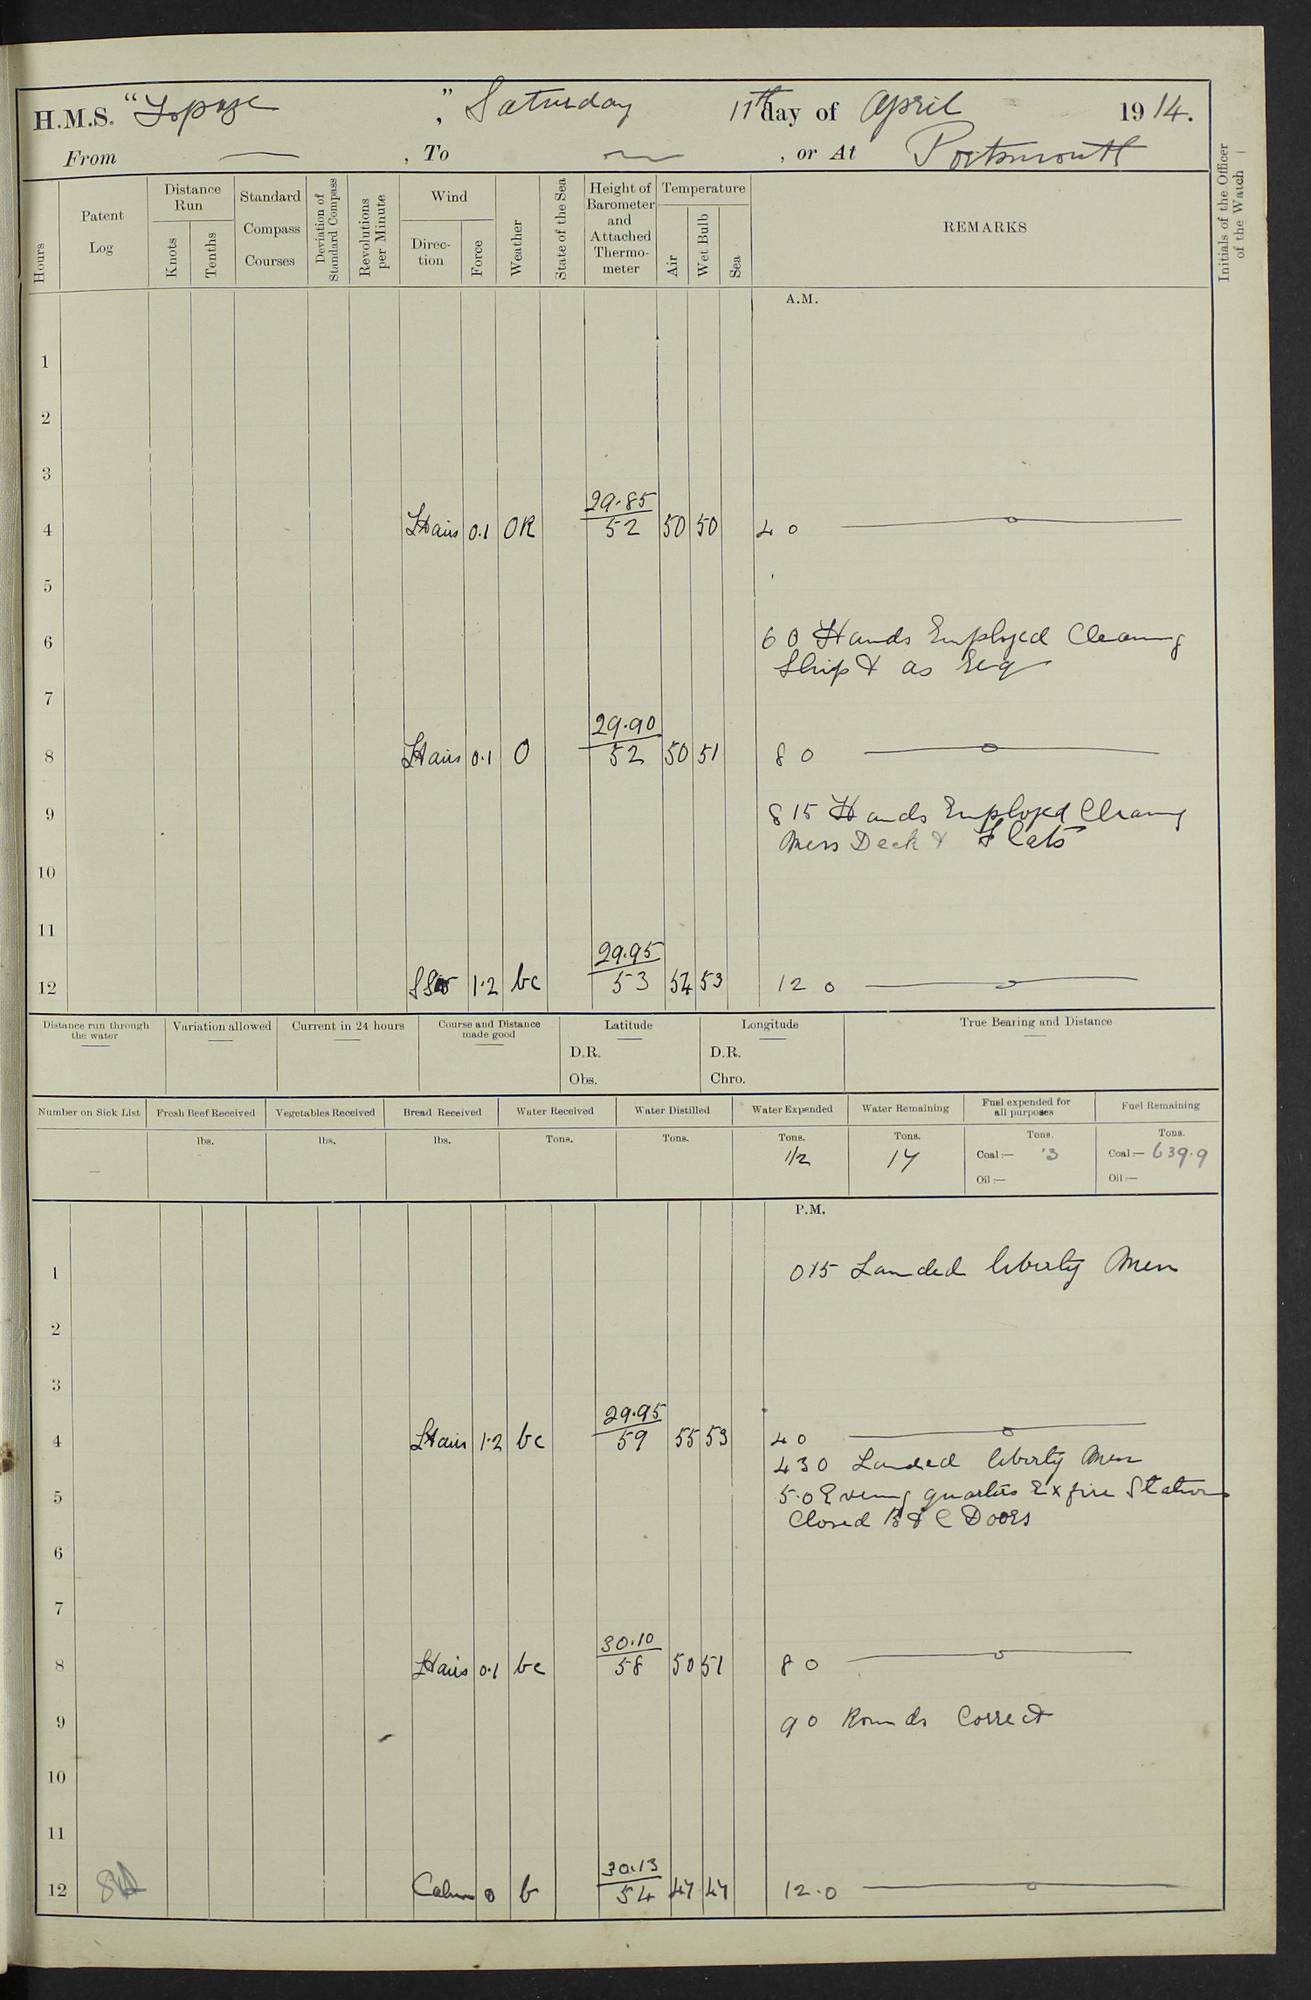 H.M.S. "Topaze", Saturday 11th day of April 1914.
From —, To —, or At Portsmouth
Hours
Patent Log
Distance Run
Knots
Tenths
Standard Compass Courses
Deviation of Standard Compass
Revolutions per Minute
Wind
Direction
Force
Weather
State of the Sea
Height of Barometer and Attached Thermometer
Temperature
Air
Wet Bulb
Sea
REMARKS
Initials of the Officer of the Watch
A.M.
1
2
3
4 Lt airs 0.1 OR 29.85/52 50 50 4 0
5
6 6 0 Hands Employed Cleaning
Ship & as Req
7
8 Lt airs 0.1 O 29.90/52 50 51 8 0
9 8 15 Hands Employed Cleaning
Mess Deck & Flats
10
11
12 SSW 1.2 bc 29.95/53 54 53 12 0
Distance run through the water
Variation allowed
Current in 24 hours
Course and Distance made good
Latitude
D.R.
Obs.
Longitude
D.R.
Chro.
True Bearing and Distance
Number on Sick List –
Fresh Beef Received lbs.
Vegetables Received lbs.
Bread Received lbs.
Water Received Tons.
Water Distilled Tons.
Water Expended Tons. 1/2
Water Remaining Tons. 17
Fuel expended for all purposes Tons.
Coal:— ·3
Oil:—
Fuel Remaining Tons.
Coal:— 639.9
Oil:—
P.M.
1 0 15 Landed liberty Men
2
3
4 Lt airs 1.2 bc 29.95/59 55 53 4 0
4 30 Landed liberty Men
5 5.0 Evening quarters Ex fire Stations
Closed B & C Doors
6
7
8 Lt airs 0.1 bc 30.10/58 50 51 8 0
9 9 0 Rounds Correct
10
11
12 Calm 0 b 30.13/54 47 47 12.0